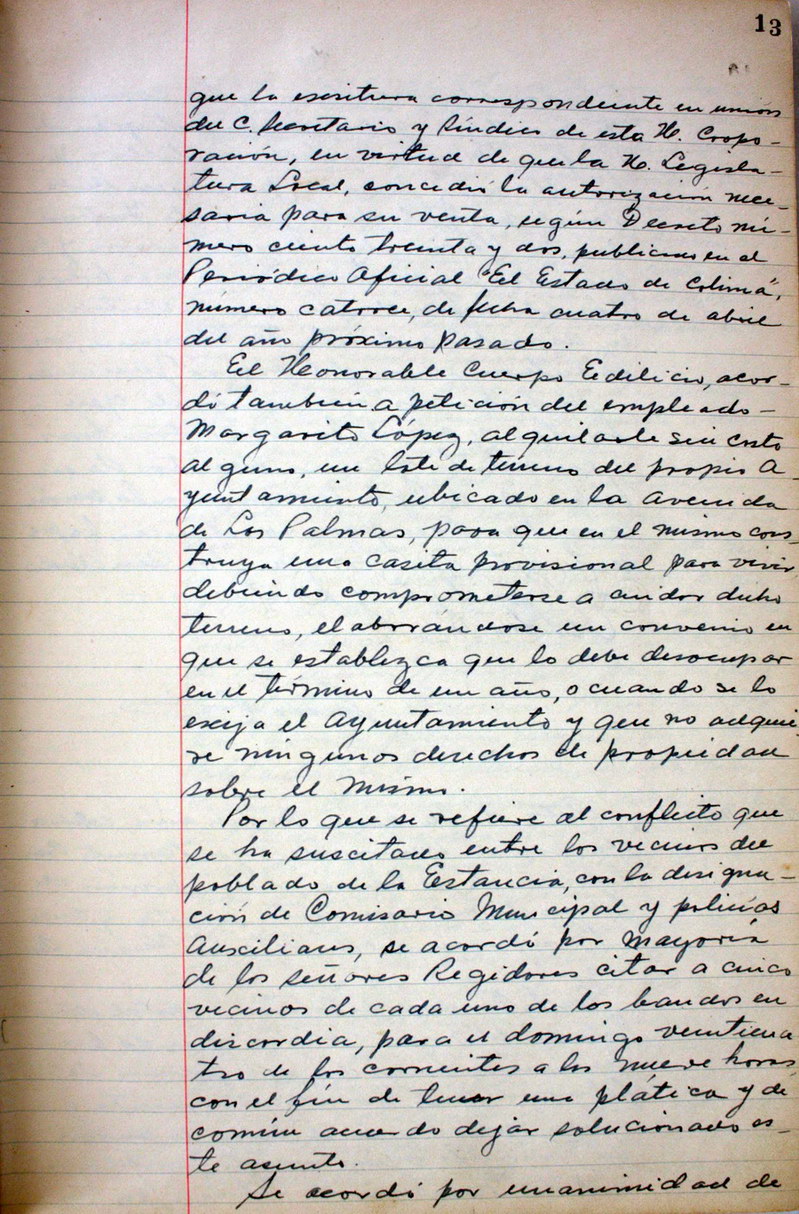 13
que la escritura correspondiente en unión
del C. Secretario y Síndico de esta H. Corpo-
ración, en virtud de que la H. Legisla-
tura Local, concedió la autorización nece-
saria para su venta, según Decreto nú-
mero ciento treinta y dos, publicado en el
Periódico Oficial "El Estado de Colima",
número catorce, de fecha cuatro de abril
del año próximo pasado.
El Honorable Cuerpo Edilicio, acor-
dó también a petición del empleado-
Margarito López, alquilarle sin costo
alguno, un lote de terreno del propio A-
yuntamiento, ubicado en la Avenida
de Las Palmas, para que en el mismo cons-
truya una casita provisional para vivir
debiendo comprometerse a dicho
terreno, elaborándose un convenio en
que se establezca que lo debe desocupar
en el término de un año, o cuando se lo
exija el Ayuntamiento y que no adquie-
re ningunos derechos de propiedad
sobre el mismo.
Por lo que se refiere al conflicto que
se ha suscitado entre los vecinos del
poblado de la Estancia, con la designa-
ción de Comisario Municipal y policías
Auxiliares, se acordó por mayoría
de los señores Regidores citar a cinco
vecinos de cada uno de los bandos en
discordia, para el domingo veinticua
tro de los corrientes a las nueve horas
con el fin de tener una plática y de
común acuerdo dejar solucionado es-
te asunto.
Se acordó por unanimidad de